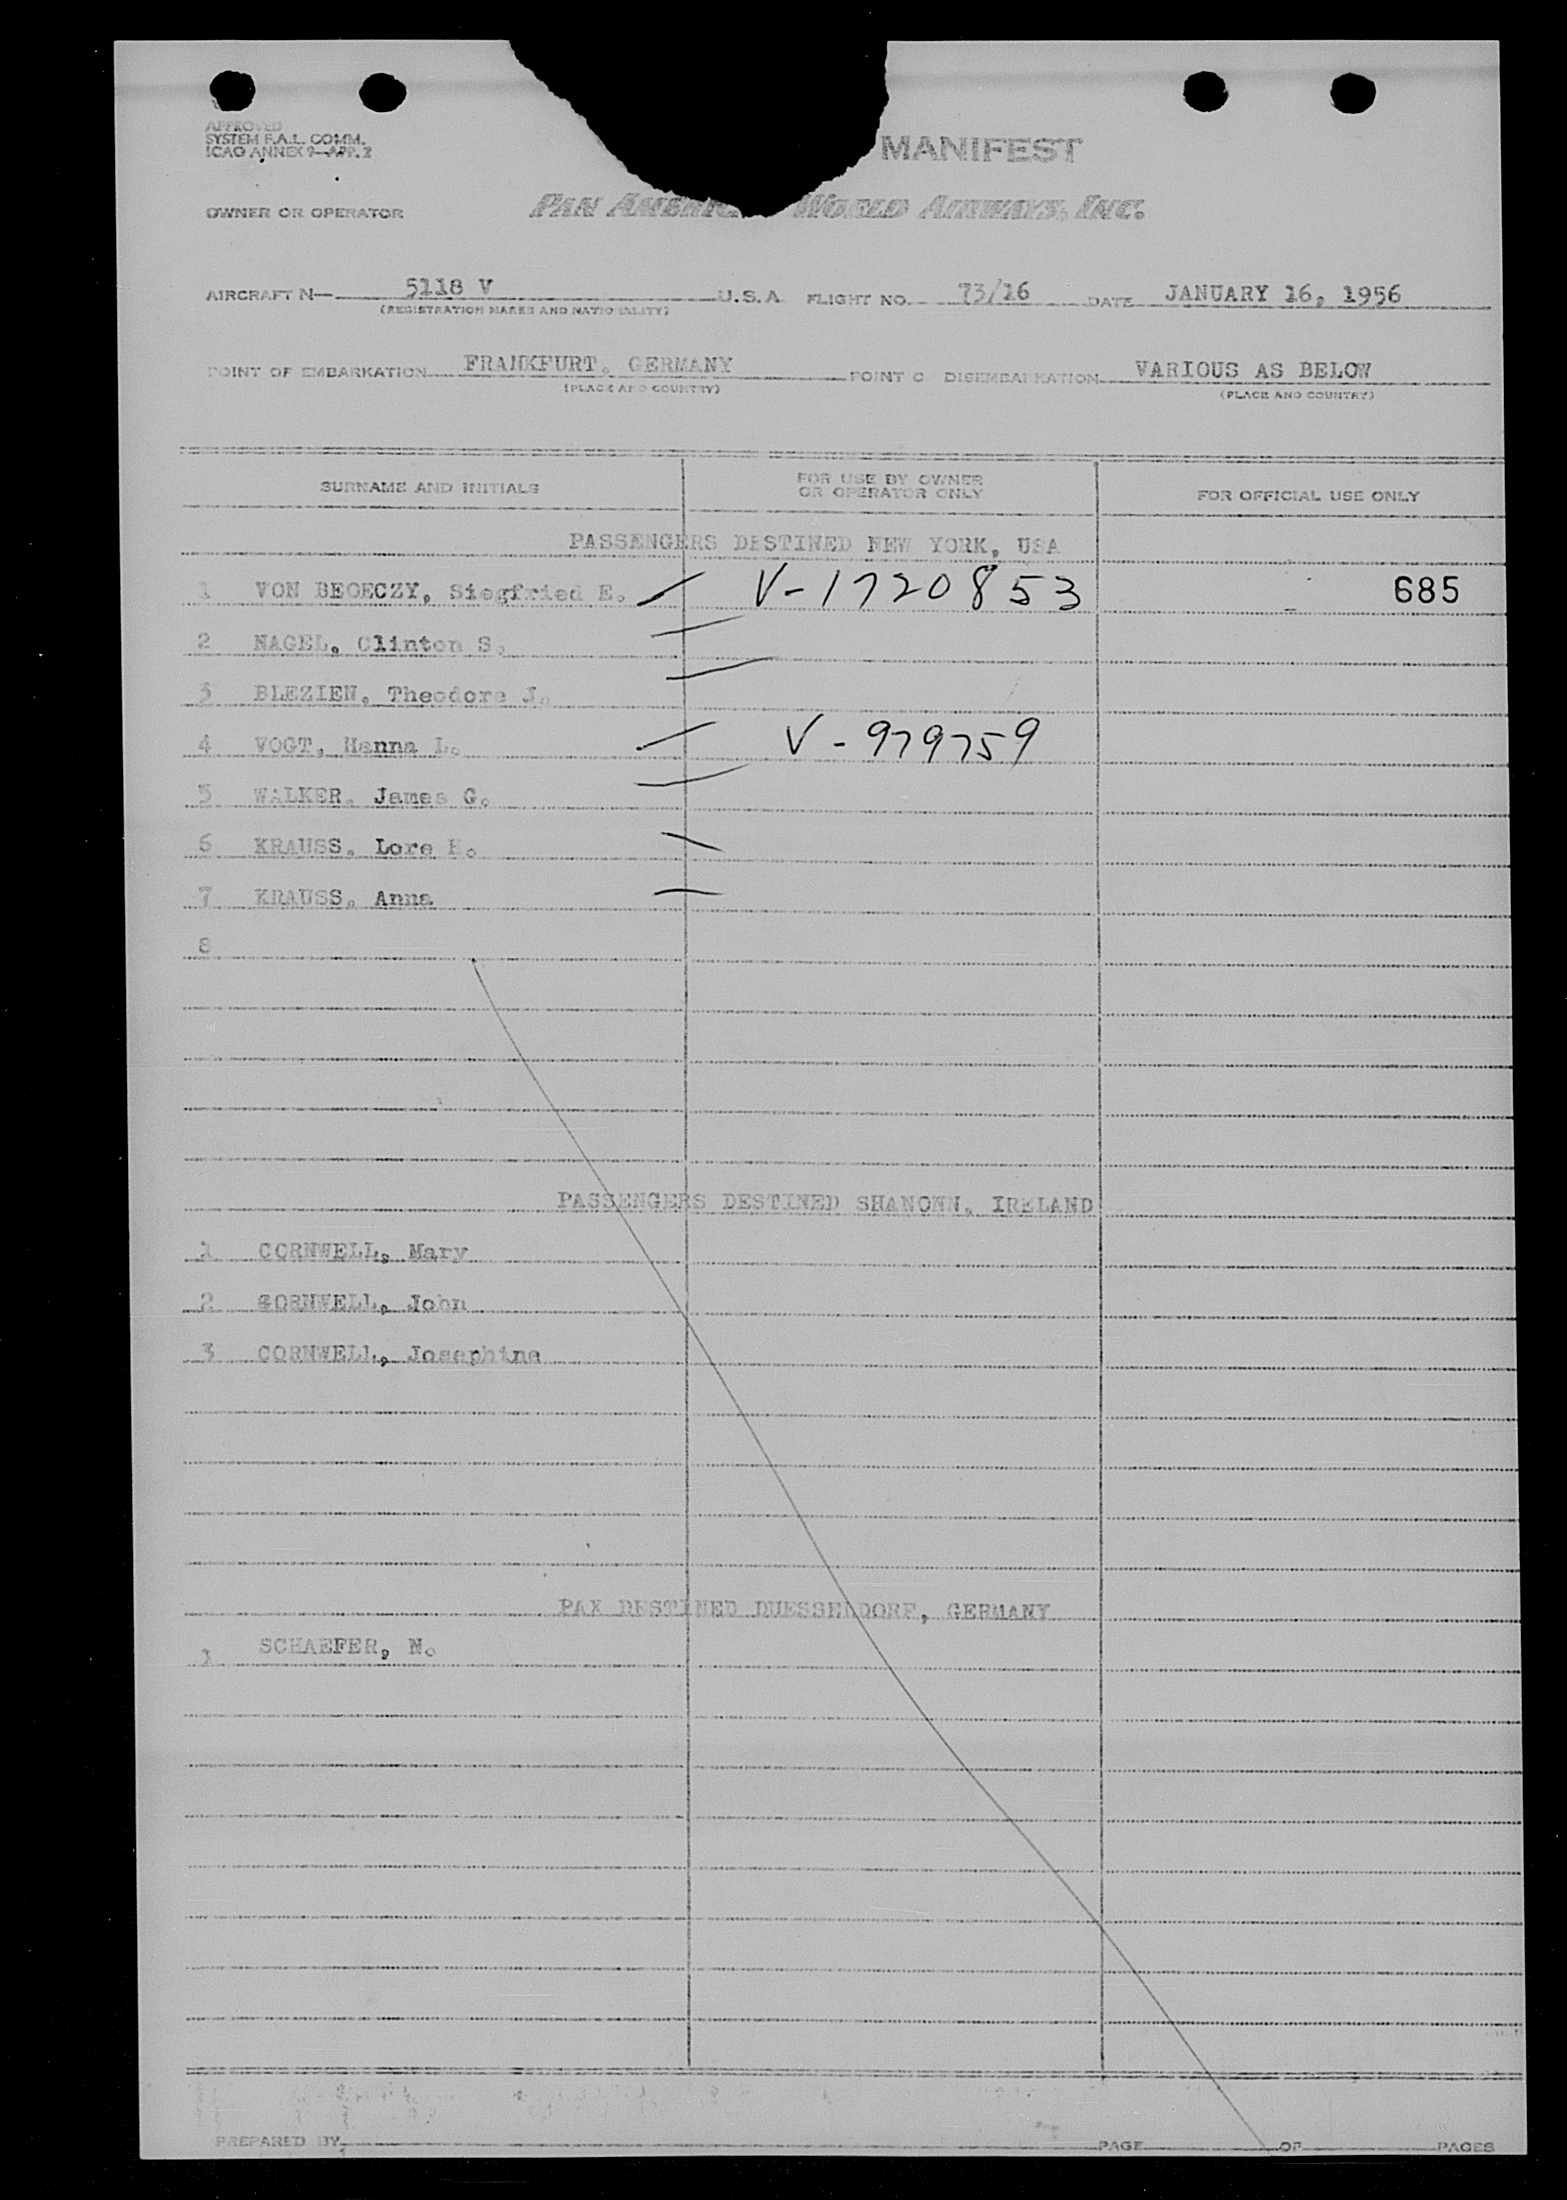 APPROVED
SYSTEM F.A.L. COMM.
ICAO ANNEX 9-APP. 2
MANIFEST
OWNER OR OPERATOR PAN AMERIC WORLD AIRWAYS, INC.
AIRCRAFT N— 5118 V U.S.A. FLIGHT NO. 73/16 DATE JANUARY 16, 1956
(REGISTRATION MARKS AND NATIONALITY)
POINT OF EMBARKATION FRANKFURT, GERMANY POINT O DISEMBARKATION VARIOUS AS BELOW
(PLACE AND COUNTRY) (PLACE AND COUNTRY)
SURNAME AND INITIALS FOR USE BY OWNER OR OPERATOR ONLY FOR OFFICIAL USE ONLY
PASSENGERS DESTINED NEW YORK, USA
1 VON BEOECZY, Siegfried E. V-1720853 685
2 NAGEL, Clinton S.
3 BLEZIEN, Theodore J.
4 VOGT, Hanna L. V-979759
5 WALKER, James G.
6 KRAUSS, Lore H.
7 KRAUSS, Anna
8
PASSENGERS DESTINED SHANONN, IRELAND
1 CORNWELL, Mary
2 CORNWELL, John
3 CORNWELL, Josephine
PAX DESTINED DUESSELDORF, GERMANY
1 SCHAEFER, N.
PREPARED BY PAGE OF PAGES